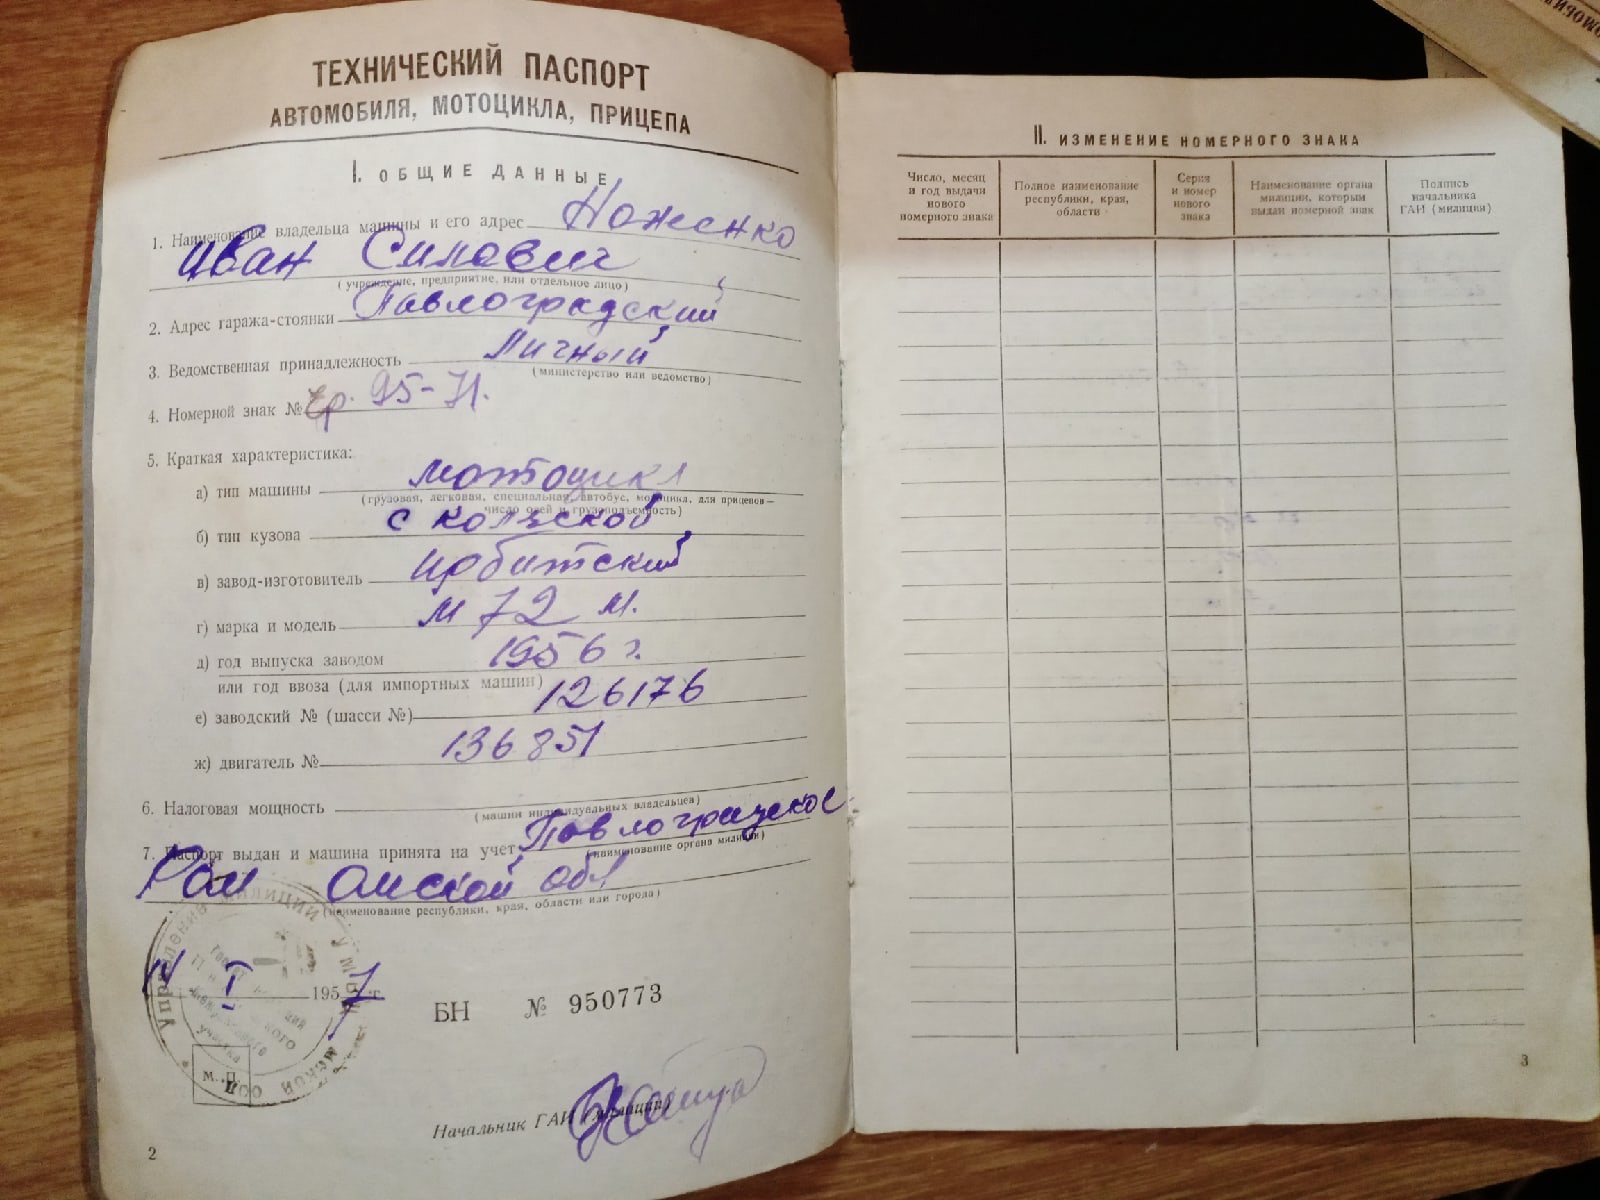 ТЕХНИЧЕСКИЙ ПАСПОРТ
АВТОМОБИЛЯ, МОТОЦИКЛА, ПРИЦЕПА
I. ОБЩИЕ ДАННЫЕ
1. Наименование владельца машины и его адрес Ноженко
Иван Силович
(учреждение, предприятие, или отдельное лицо)
2. Адрес гаража-стоянки Павлоградский
3. Ведомственная принадлежность Личный
(министерство или ведомство)
4. Номерной знак № 95-71.
5. Краткая характеристика:
а) тип машины мотоцикл
(грузовая, легковая, специальная, автобус, мотоцикл, для прицепов —
число осей и грузоподъемность)
б) тип кузова с коляской
в) завод-изготовитель Ирбитский
г) марка и модель М 72 М.
д) год выпуска заводом 1956 г.
или год ввоза (для импортных машин)
е) заводский № (шасси №) 126176
ж) двигатель № 136851
6. Налоговая мощность
(машин индивидуальных владельцев)
7. Паспорт выдан и машина принята на учет Павлоградское
(наименование органа милиции)
Ром Омской обл
(наименование республики, края, области или города)
Управление милиции
участка
I 1957 г.
БН № 950773
М. П.
Начальник ГАИ (милиции)
2
II. ИЗМЕНЕНИЕ НОМЕРНОГО ЗНАКА
Число, месяц и год выдачи нового номерного знака
Полное наименование республики, края, области
Серия и номер нового знака
Наименование органа милиции, которым выдан номерной знак
Подпись начальника ГАИ (милиции)
3